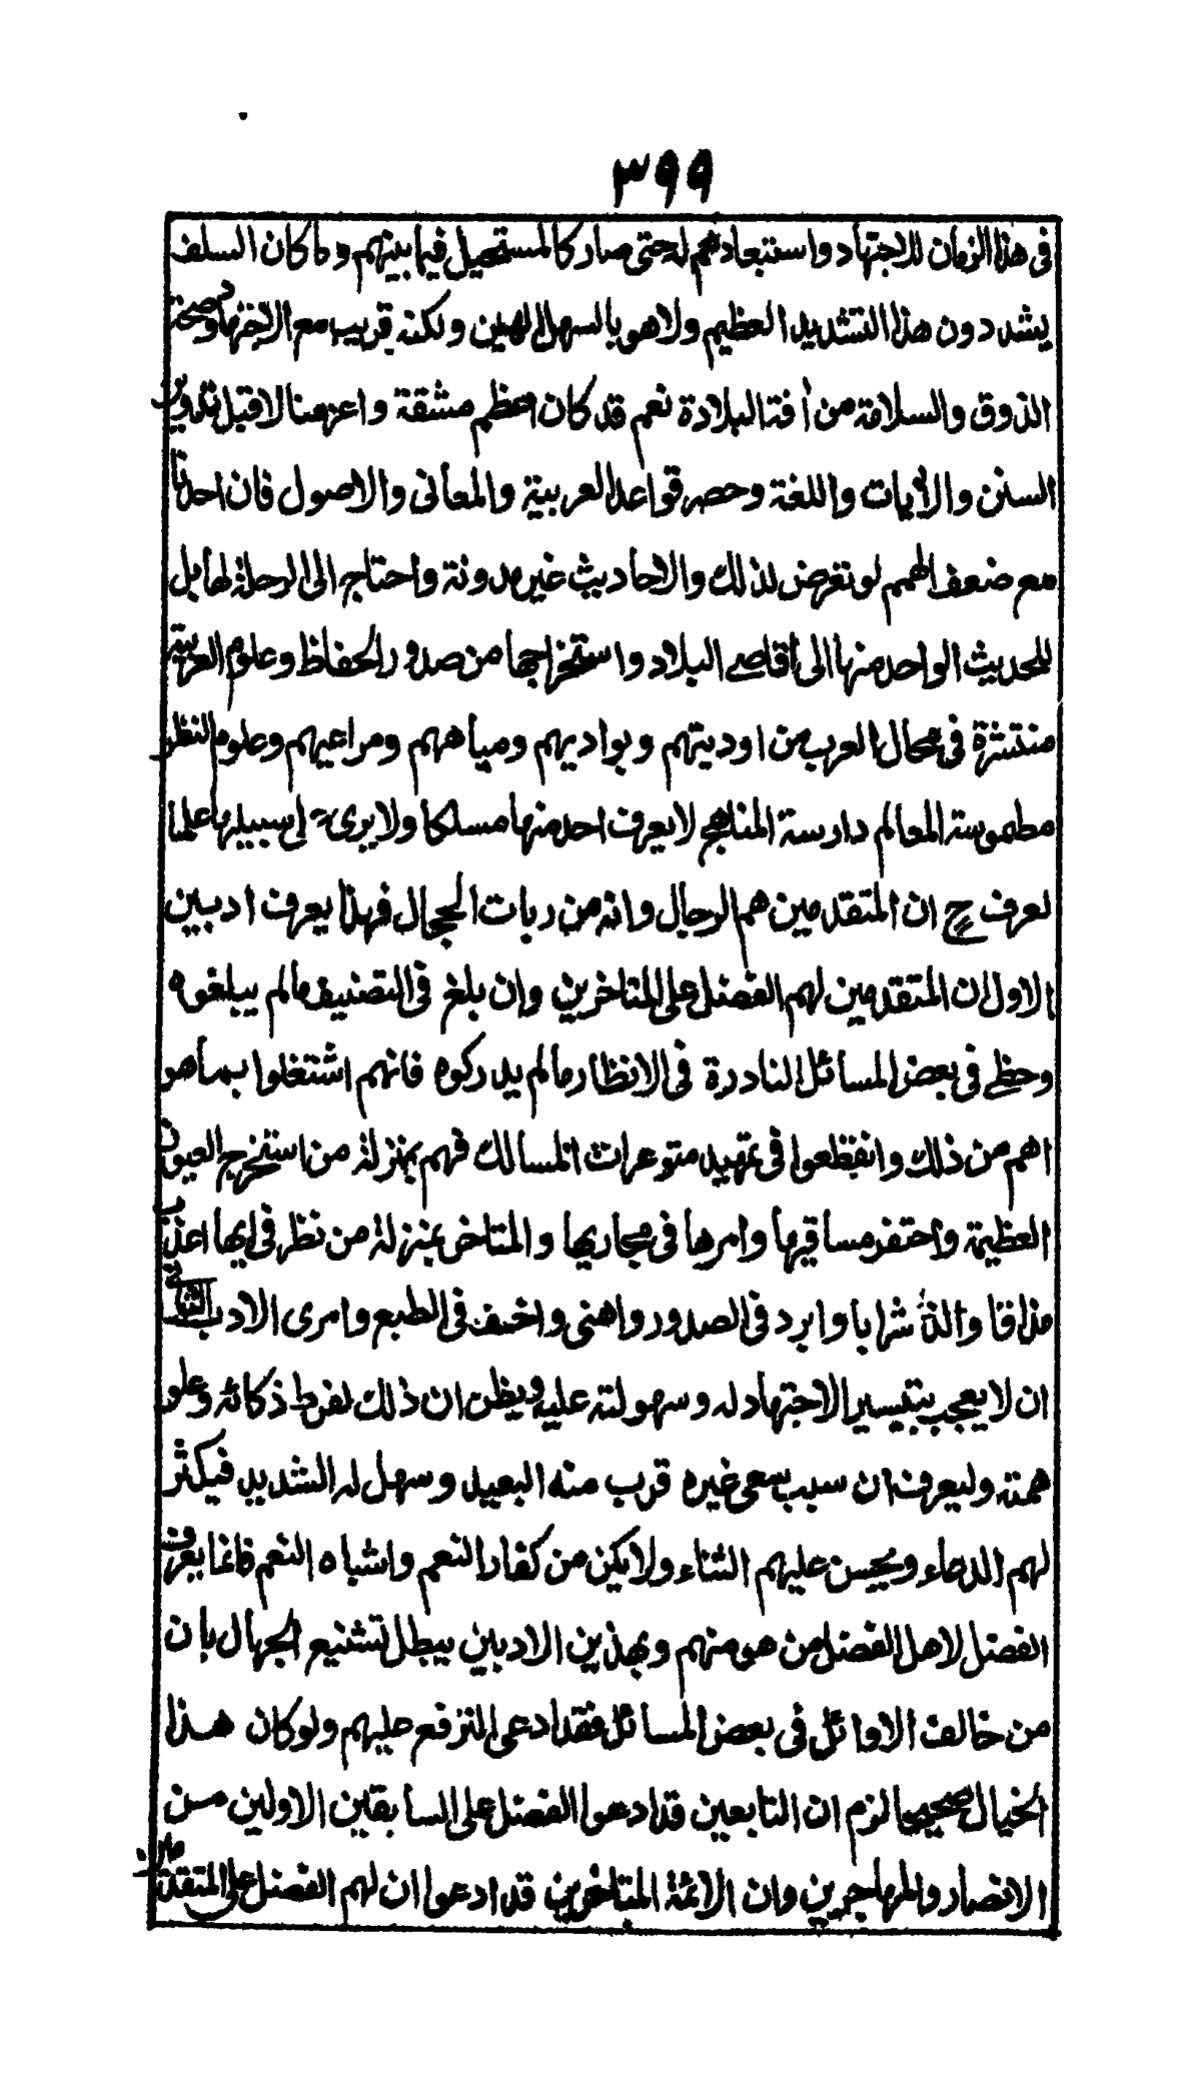 ٣٩٩
فى هذا الزمان للاجتهاد واستبعادهم له حتى صار كالمستحيل فيما بينهم وما كان السلف
يشددون هذا التشديد العظيم ولا هو بالسهل الهين ولكنه قريب مع الاجتهاد وصحة
الذوق والسلامة من أفة البلادة نعم قد كان اعظم مشقة واعز منالا قبل تدوين
السنن والأيات واللغة وحصر قواعد العربية والمعانى والاصول فان احدنا
مع ضعف الهمم لو تعرض لذلك والاحاديث غير مدونة واحتاج الى الرحلة لها بل
للحديث الواحد منها الى أقاصى البلاد واستخراجها من صدور الحفاظ وعلوم العربية
منتشرة فى محال العرب من اوديتهم وبواديهم ومياههم ومراعيهم وعلوم النظر
مطموسة المعالم دارسة المناهج لا يعرف احد منها مسلكا ولا يرى الى سبيلها علما
لعرف ح ان المتقدمين هم الرجال وانه من ربات الحجال فهذا يعرف ادبين
الاول ان المتقدمين لهم الفضل على المتاخرين وان بلغ فى التصنيف مالم يبلغوه
وحظى فى بعض المسائل النادرة فى الانظار مالم يدركوه فانهم اشتغلوا بما هو
اهم من ذلك وانقطعوا فى تمهيد متوعرات المسالك فهم بمنزلة من استخرج العيون
العظيمة واحتفر مساقيها وامرها فى مجاريها والمتاخر بمنزلة من نظر فى ايها اعذب
مذاقا والذ شرابا وابرد فى الصدور واهنى واخف فى الطبع وامرى الادب الثانى
ان لا يعجب بتيسير الاجتهاد له وسهولته عليه ويظن ان ذلك لفرط ذكائه وعلو
همته وليعرف ان سبب سعى غيره قرب منه البعيد وسهل له الشديد فيكثر
لهم الدعاء ويحسن عليهم الثناء ولا يكن من كفار النعم واشباه النعم فانما يعرف
الفضل لاهل الفضل من هو منهم وبهذين الادبين يبطل تشنيع الجهال بان
من خالف الاوائل فى بعض المسائل فقد ادعى الترفع عليهم ولو كان هذا
الخيال صحيحا لزم ان التابعين قد ادعوا الفضل على السابقين الاولين من
الانصار والمهاجرين وان الائمة المتاخرين قد ادعوا ان لهم الفضل على المتقدمين